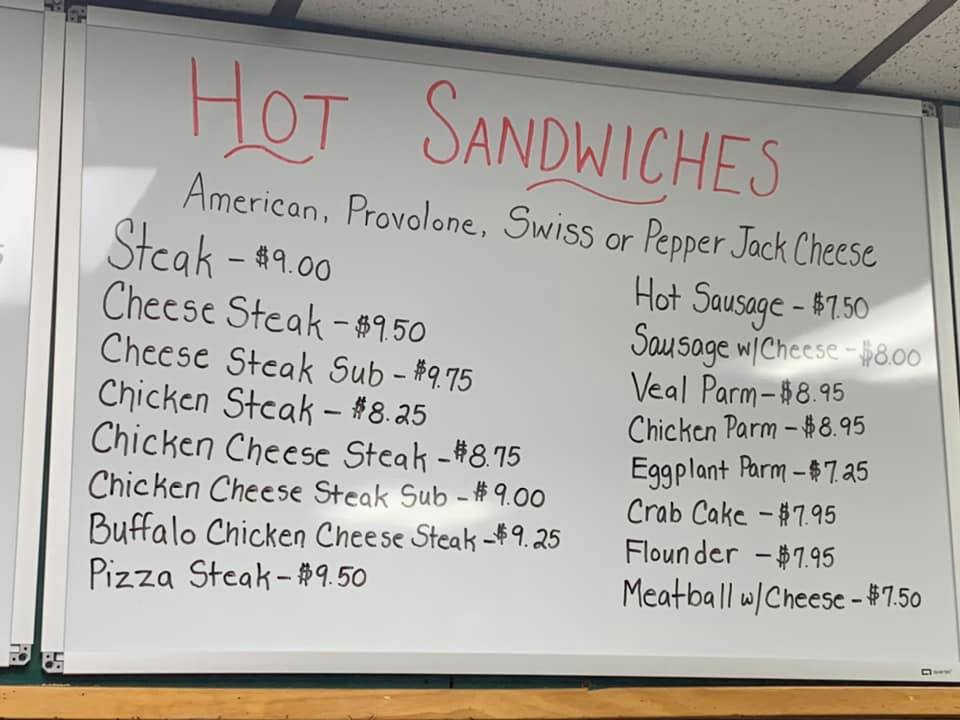 HOT SANDWICHES
American, Provolone, Swiss or Pepper Jack Cheese
Steak - $9.00
Cheese Steak - $9.50
Cheese Steak Sub - $9.75
Chicken Steak - $8.25
Chicken Cheese Steak - $8.75
Chicken Cheese Steak Sub - $9.00
Buffalo Chicken Cheese Steak - $9.25
Pizza Steak - $9.50
Hot Sausage - $7.50
Sausage w/Cheese - $8.00
Veal Parm - $8.95
Chicken Parm - $8.95
Eggplant Parm - $7.25
Crab Cake - $7.95
Flounder - $7.95
Meatball w/Cheese - $7.50